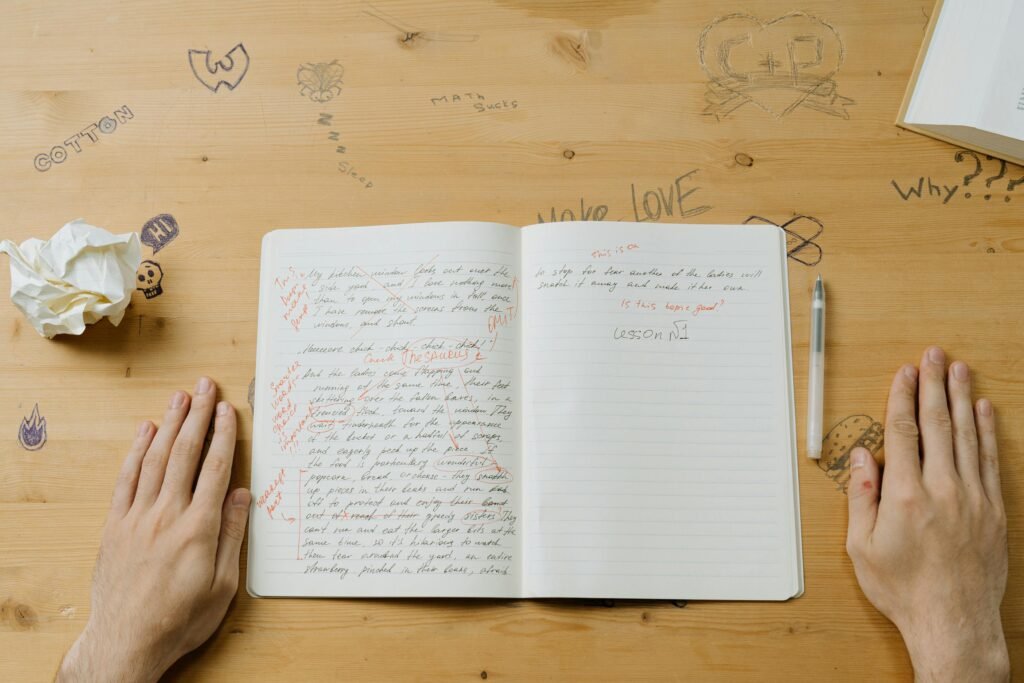 COTTON
W
MATH
Sucks
Sleep
C+P
Why???
Make LOVE
HI
My kitchen window looks out over the
side yard and I love nothing more
than to open my windows in fall, once
I have remove the screens from the
windows, and shout.
OMIT!
chick-chick-chick-chick!
Check Thesaurus
And the ladies come flapping and
running at the same time, their feet
skittering over the fallen leaves, in a
frenzied flock, toward the window. They
wait underneath for the appearance
of the bucket or a handful of scraps,
and eagerly peck up the piece. If
the food is particulary wonderful -
popcorn, bread, or cheese - they snatch
up pieces in their beaks and run
off to protect and enjoy their
out of reach of their greedy sisters. They
can't run and eat the larger bits at the
same time, so it's hilarious to watch
them tear around the yard, an entire
strawberry pinched in their beaks, afraid
This is a
to stop for fear another of the ladies will
snatch it away and make it her own.
Is this topic good?
Lesson №1